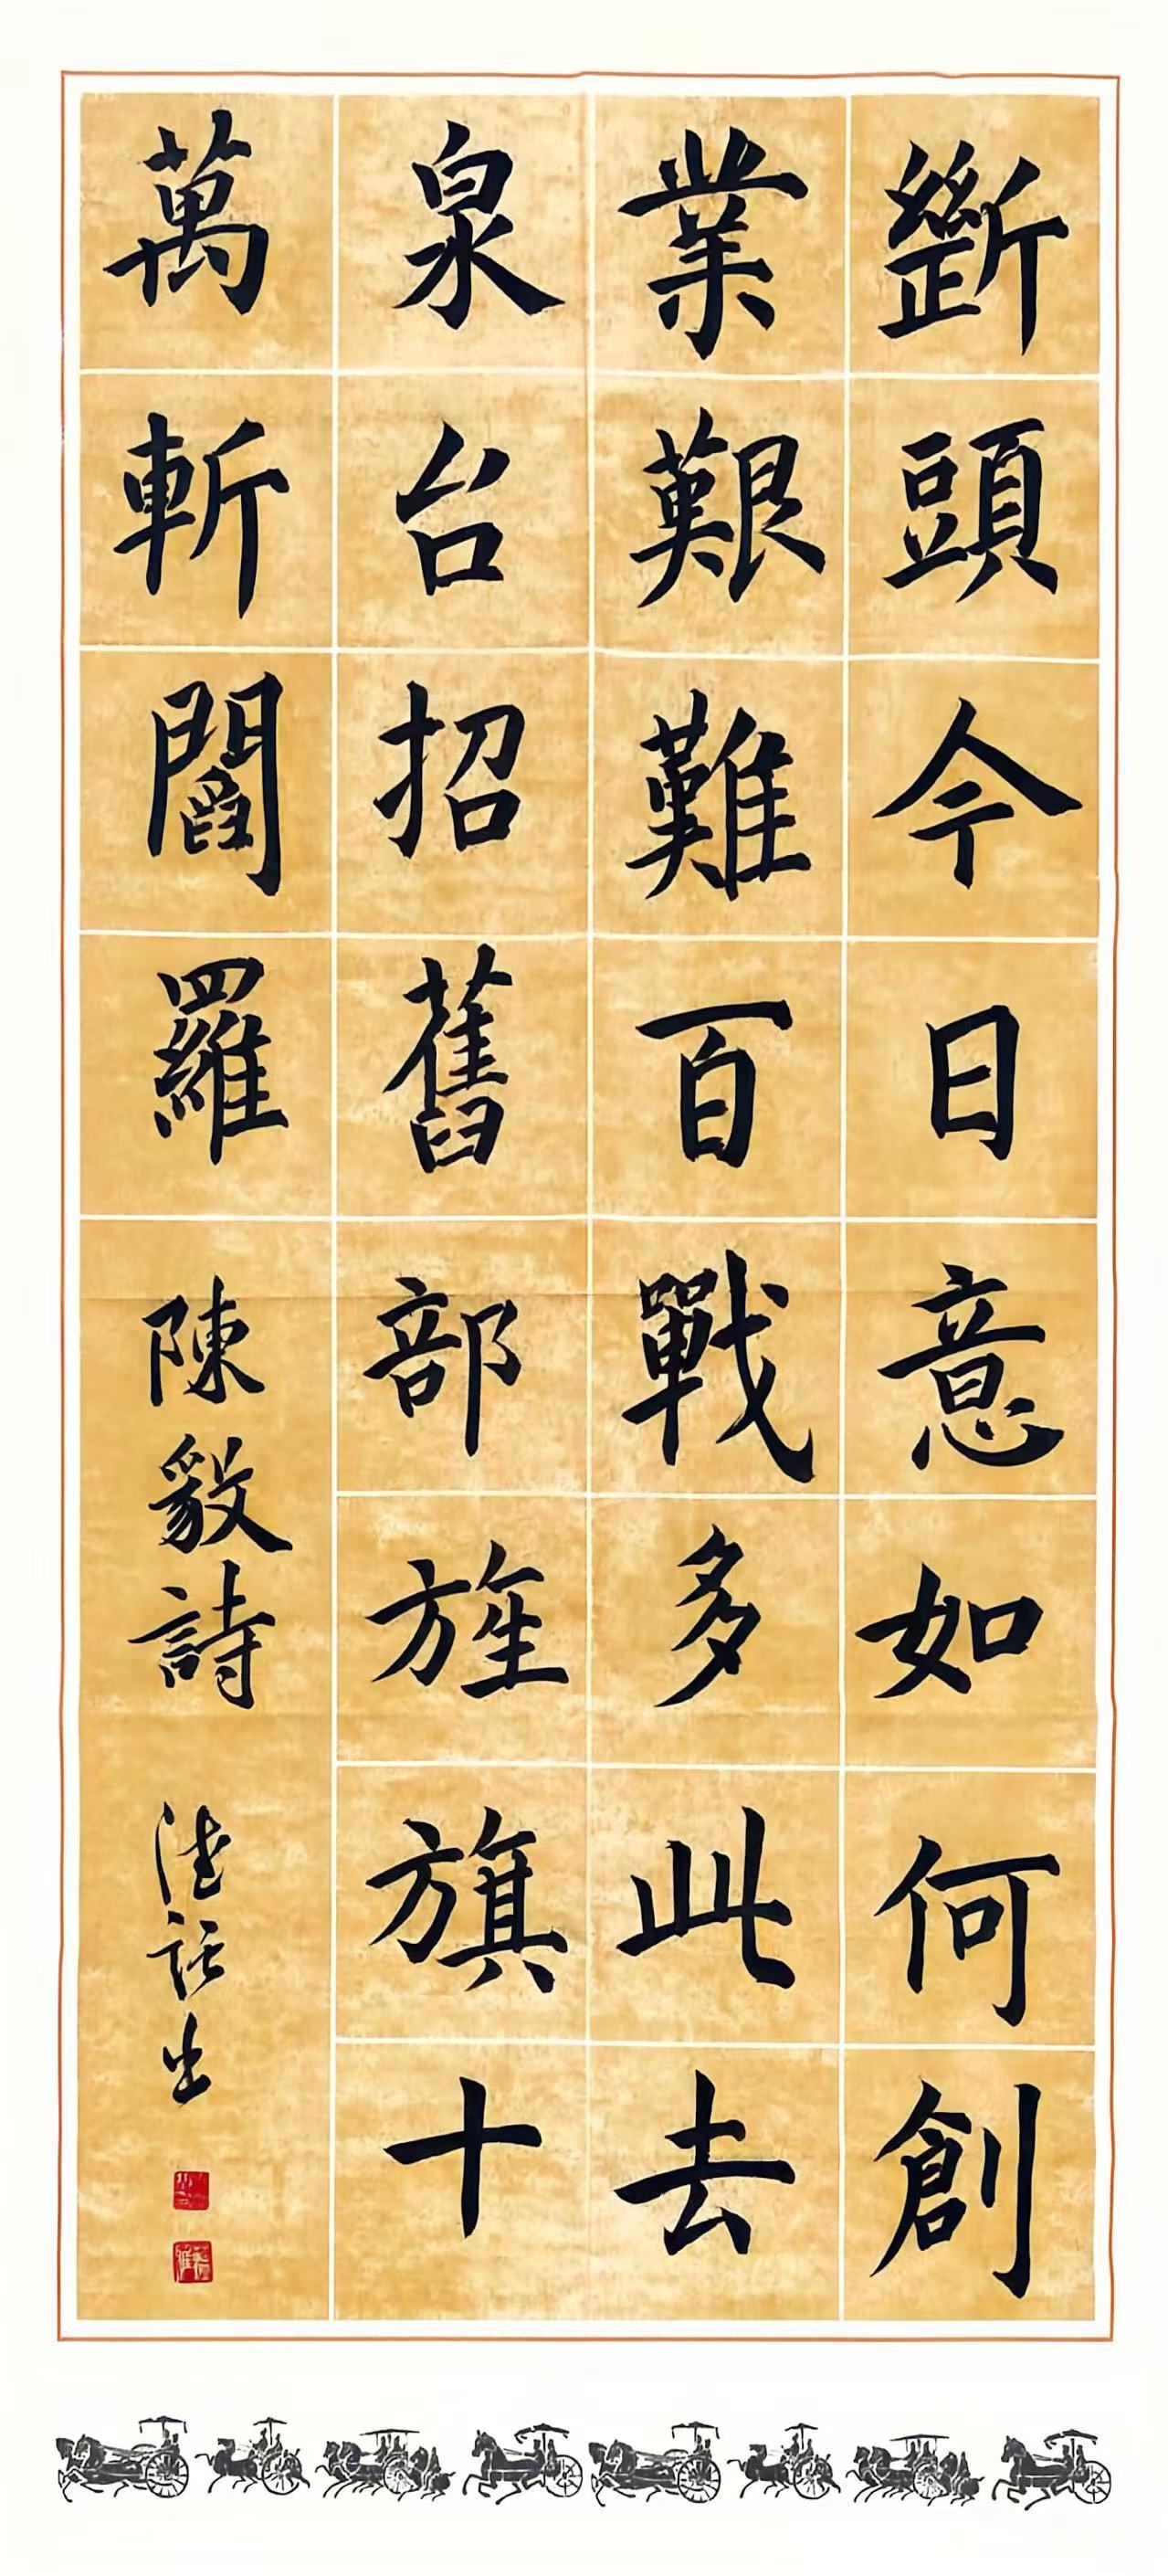 斷頭今日意如何創
業艱難百戰多此去
泉台招舊部旌旗十
萬斬閻羅 陳毅詩